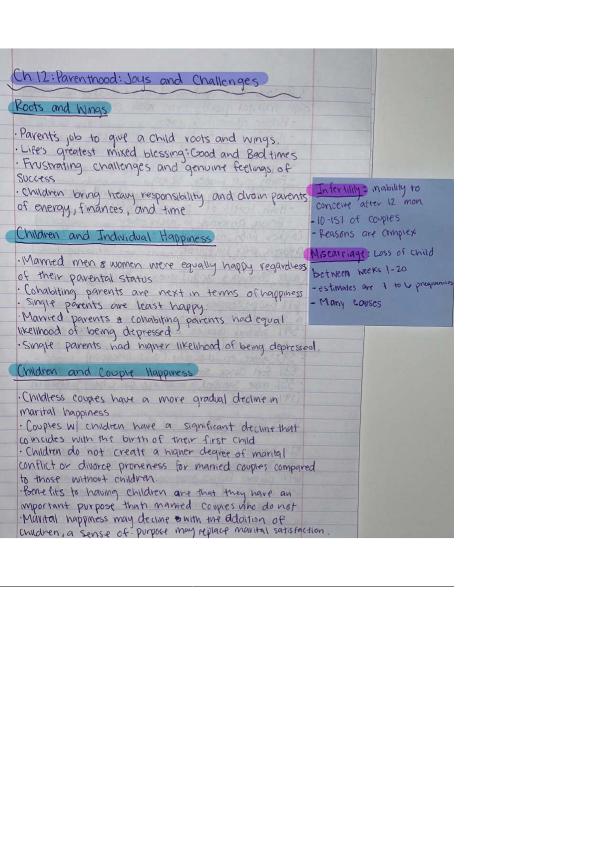 Ch 12: Parenthood: Joys and Challenges
Roots and Wings
· Parents job to give a child roots and wings.
· Life's greatest mixed blessing: Good and Bad times
· Frustrating challenges and genuine feelings of
success
· Children bring heavy responsibility and drain parents
of energy, finances, and time
Children and Individual Happiness
· Married men & women were equally happy regardless
of their parental status
· Cohabiting parents are next in terms of happiness
· Single parents are least happy.
· Married parents & cohabiting parents had equal
likelihood of being depressed
· Single parents had higher likelihood of being depressed.
Children and Couple Happiness
· Childless couples have a more gradual decline in
marital happiness
· Couples w/ children have a significant decline that
coincides with the birth of their first child
· Children do not create a higher degree of marital
conflict or divorce proneness for married couples compared
to those without children.
· Benefits to having children are that they have an
important purpose than married couples who do not
· Marital happiness may decline with the addition of
children, a sense of purpose may replace marital satisfaction.
Infertility: inability to
conceive after 12 mon
- 10-15% of couples
- Reasons are complex
Miscarriage: Loss of child
between weeks 1-20
- estimates are 1 to 6 pregnancies
- Many causes